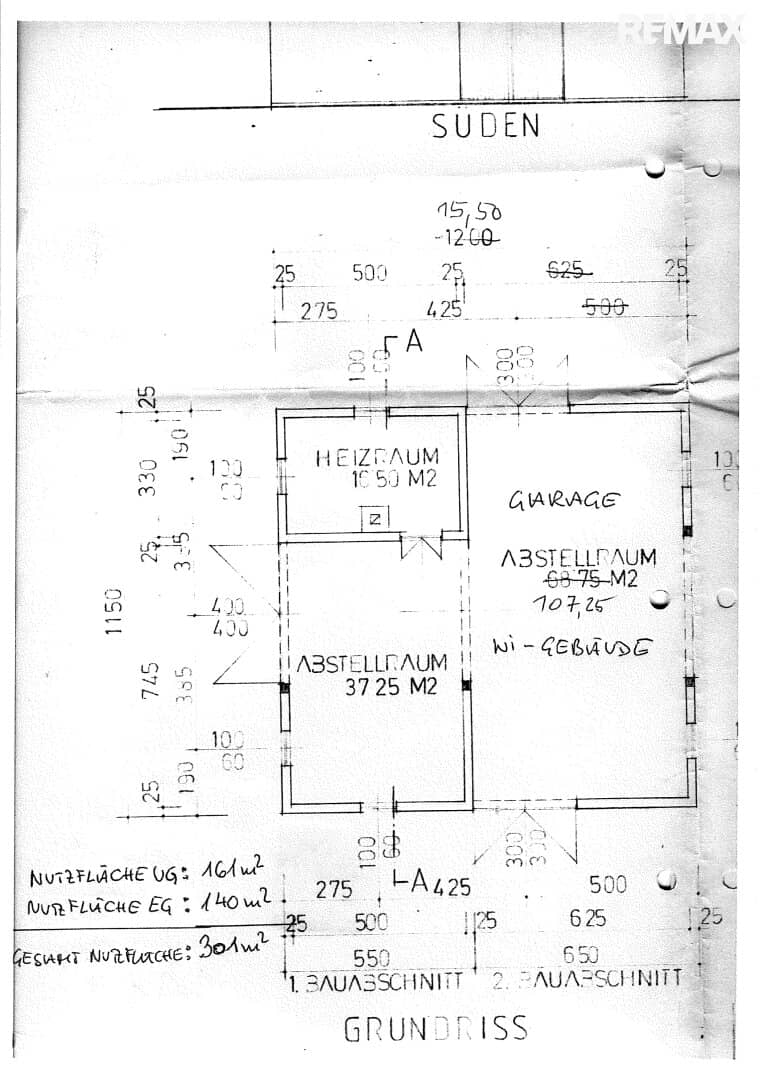 RE/MAX
SÜDEN
15,50
1200
25 500 25 625 25
275 425 500
A
100
60
300
300
25
190
330
100
60
HEIZRAUM
16 50 M2
GARAGE
25
385
ABSTELLRAUM
68 75 M2
107,25
1150
400
400
WI-GEBÄUDE
745
385
ABSTELLRAUM
37 25 M2
100
60
25
190
100
60
300
300
NUTZFLÄCHE UG: 161m²
275 A 425 500
NUTZFLÄCHE EG: 140m²
25 500 25 625 25
GESAMT NUTZFLÄCHE: 301m²
550 650
1. BAUABSCHNITT 2. BAUABSCHNITT
GRUNDRISS